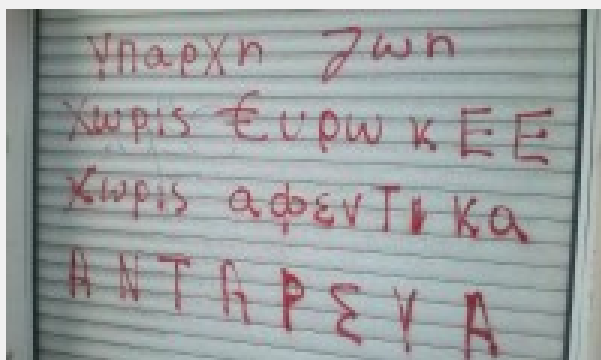 Υπαρχη ζωη
χωρις €υρω κ ΕΕ
χωρις αφεντικα
ΑΝΤΑΡΣΥΑ